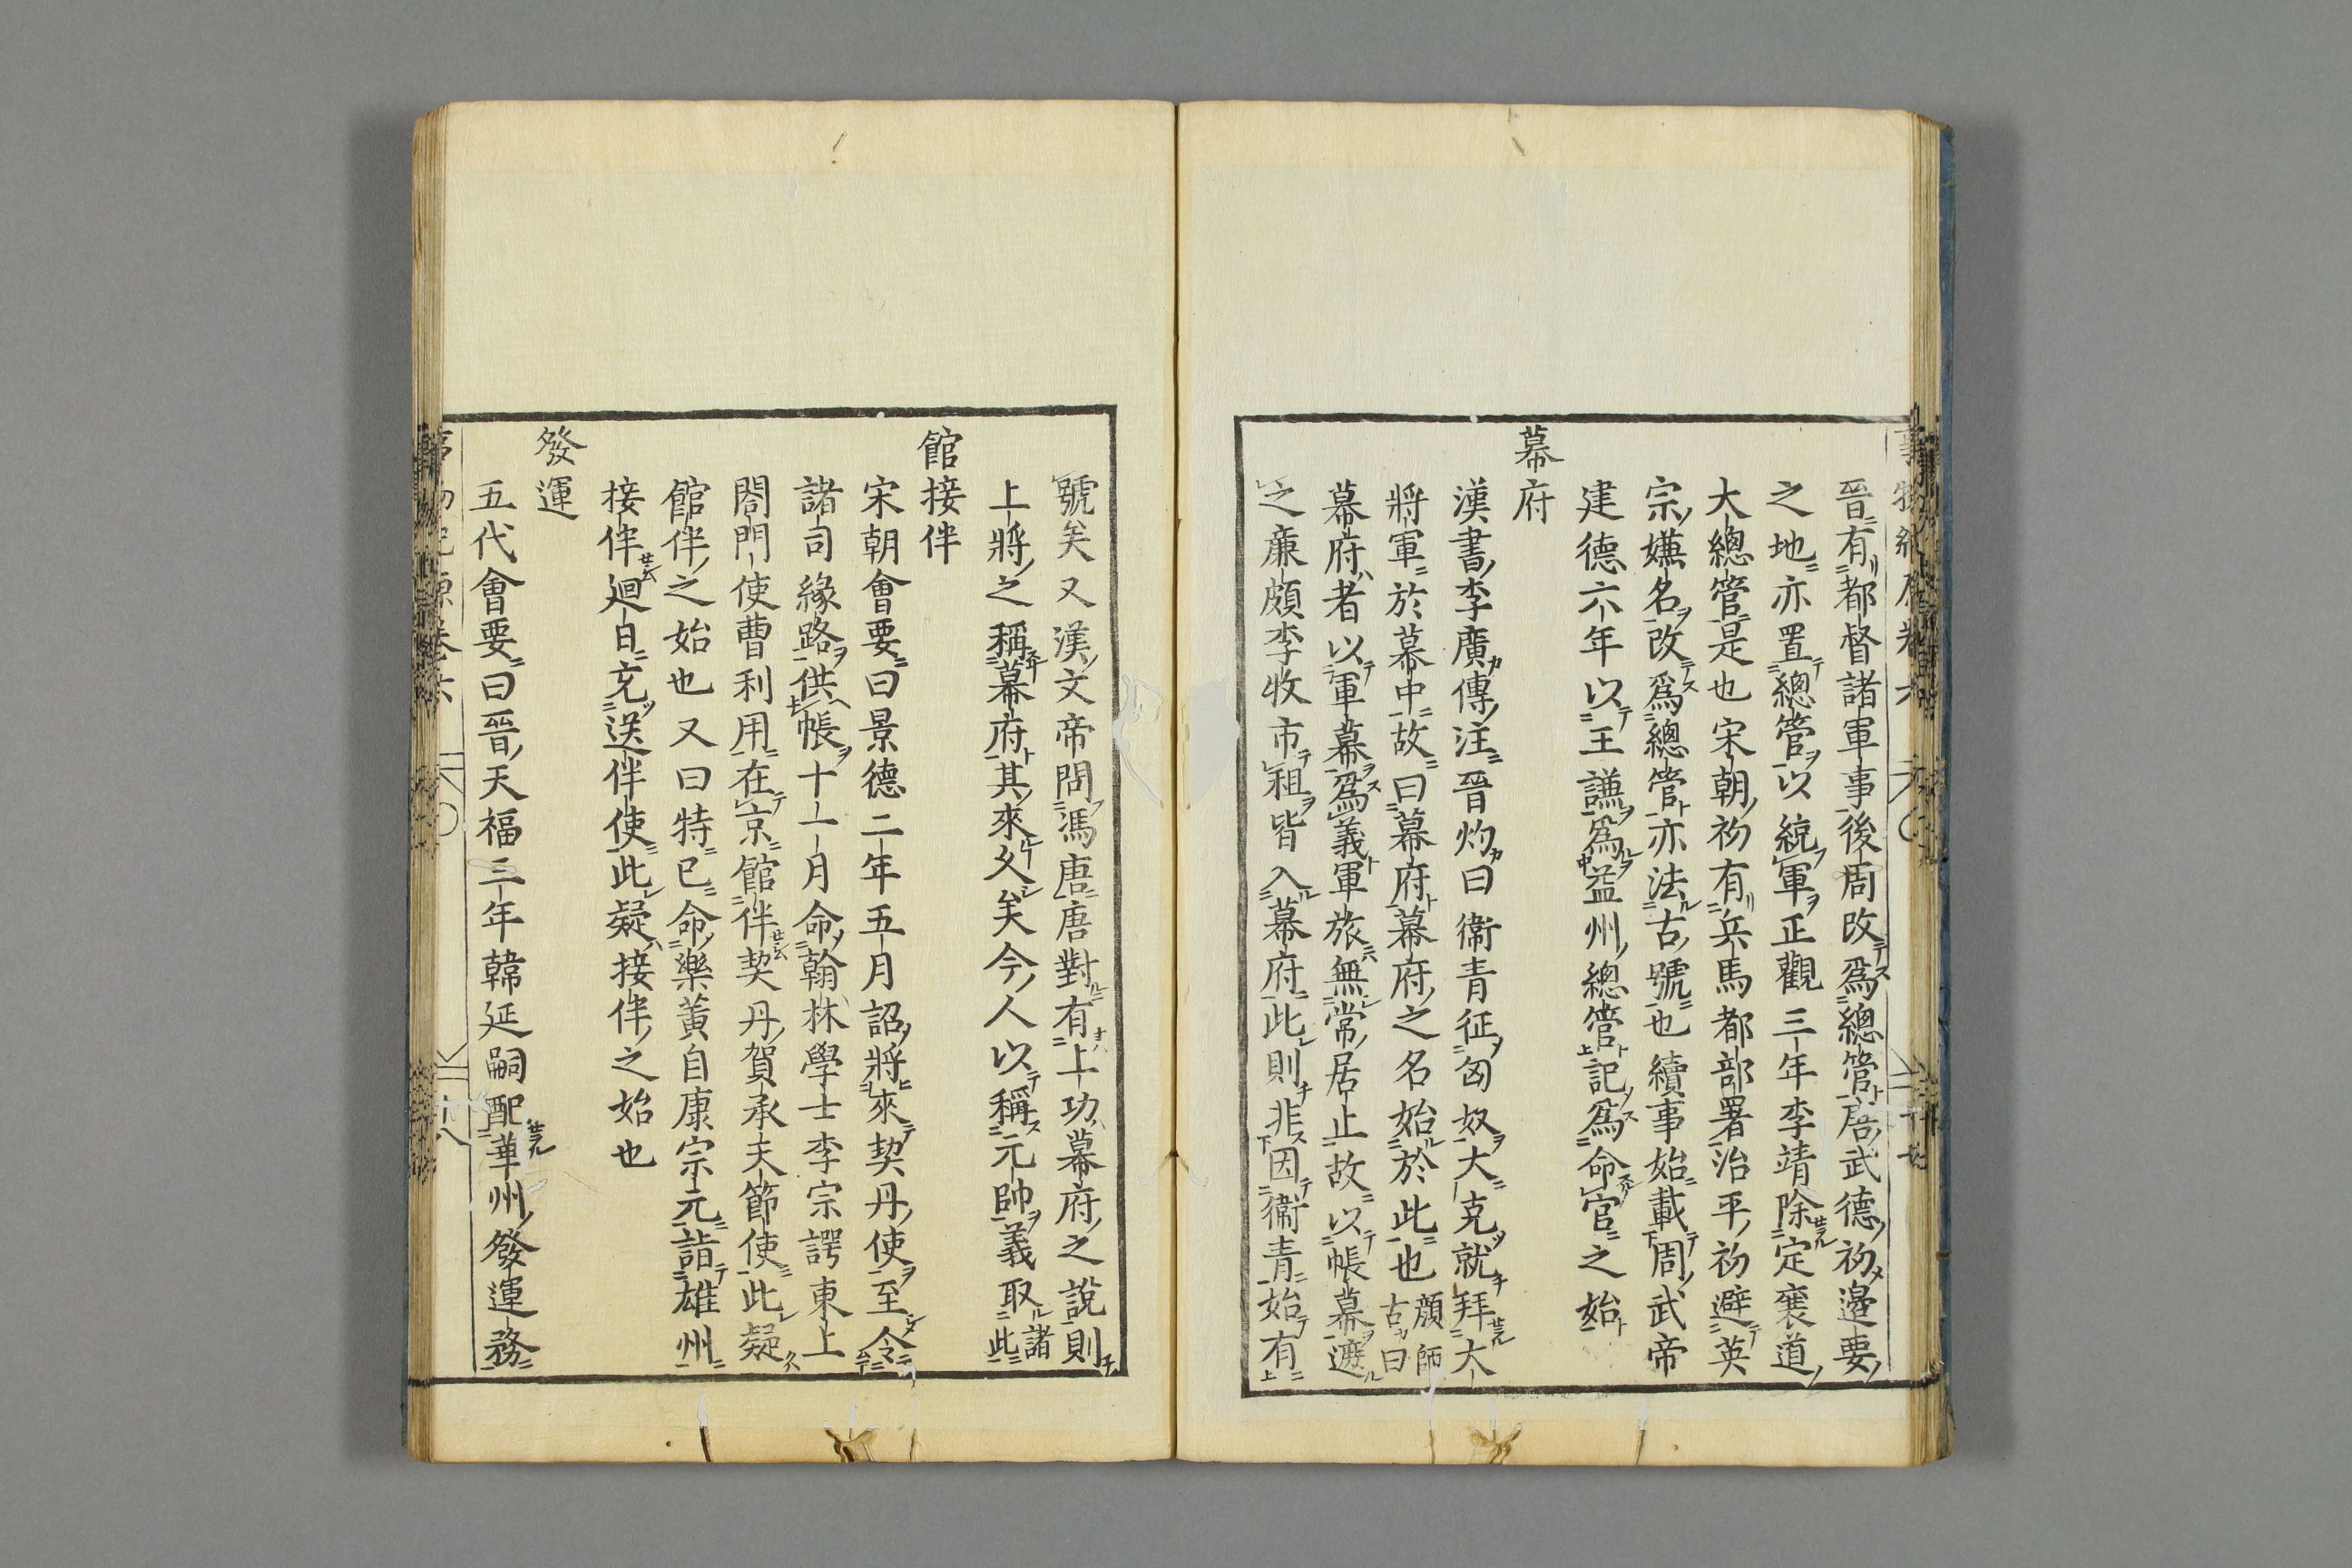 晉有都督諸軍事後周改爲總管唐武德初邉要
之地亦置總管以統軍正觀三年李靖除定襄道
大總管是也宋朝初有兵馬都部署治平初避英
宗嫌名改爲總管亦法古號也續事始載周武帝
建德六年以王謙爲益州總管記爲命官之始
幕府
漢書李廣傳注晉灼曰衞青征匈奴大克就拜大
將軍於幕中故曰幕府幕府之名始於此也顔師古曰
幕府者以軍幕爲義軍旅無常居止故以帳幕遮
之廉頗李牧市租皆入幕府此則非因衞青始有
號矣又漢文帝問馮唐唐對有上功幕府之說則
上將之稱幕府其來久矣今人以稱元帥義取諸此
館接伴
宋朝會要曰景德二年五月詔將來契丹使至令
諸司緣路供帳十一月命翰林學士李宗諤東上
閤門使曹利用在京館伴契丹賀承天節使此疑
館伴之始也又曰特已命樂黃自康宗元詣雄州
接伴廻日充送伴使此疑接伴之始也
發運
五代會要曰晉天福三年韓延嗣配華州發運務